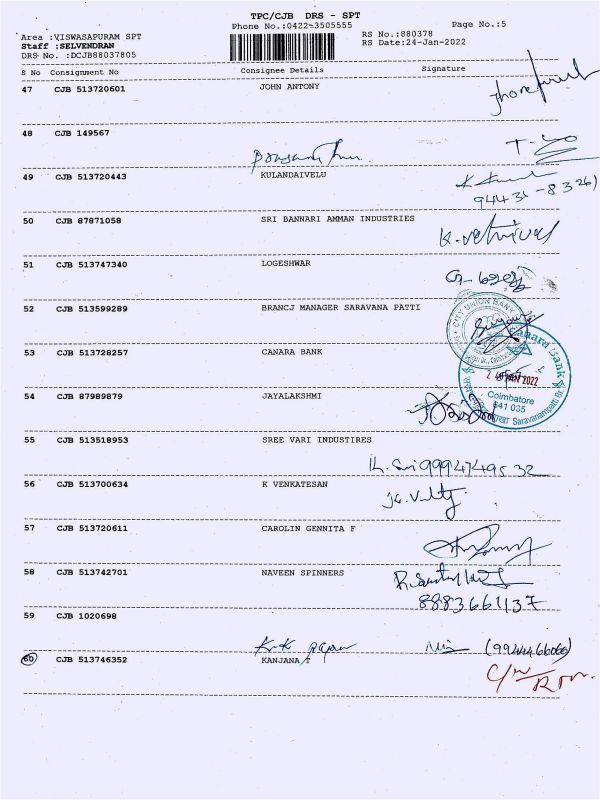 TPC/CJB DRS - SPT
Phone No.:0422-3505555
Page No.:5
Area :VISWASAPURAM SPT
RS No.:880378
Staff :SELVENDRAN
RS Date:24-Jan-2022
DRS No. :DCJB88037805
S No Consignment No Consignee Details Signature
47 CJB 513720601 JOHN ANTONY
48 CJB 149567
49 CJB 513720443 KULANDAIVELU
50 CJB 87871058 SRI BANNARI AMMAN INDUSTRIES
51 CJB 513747340 LOGESHWAR
52 CJB 513599289 BRANCJ MANAGER SARAVANA PATTI
CITY UNION BANK
53 CJB 513728257 CANARA BANK
Canara Bank
JAN 2022
Coimbatore
641 035
Saravanampatti Br.
54 CJB 87989879 JAYALAKSHMI
55 CJB 513518953 SREE VARI INDUSTIRES
9994749532
56 CJB 513700634 K VENKATESAN
57 CJB 513720611 CAROLIN GENNITA F
58 CJB 513742701 NAVEEN SPINNERS
8883661137
59 CJB 1020698
60 CJB 513746352 KANJANA T